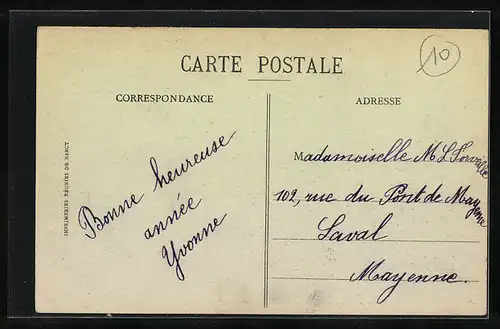 10
CARTE POSTALE
CORRESPONDANCE
ADRESSE
IMPRIMERIES RÉUNIES DE NANCY
Bonne heureuse
année
Yvonne
Mademoiselle M L
102, rue du Pont de Mayenne
Laval
Mayenne